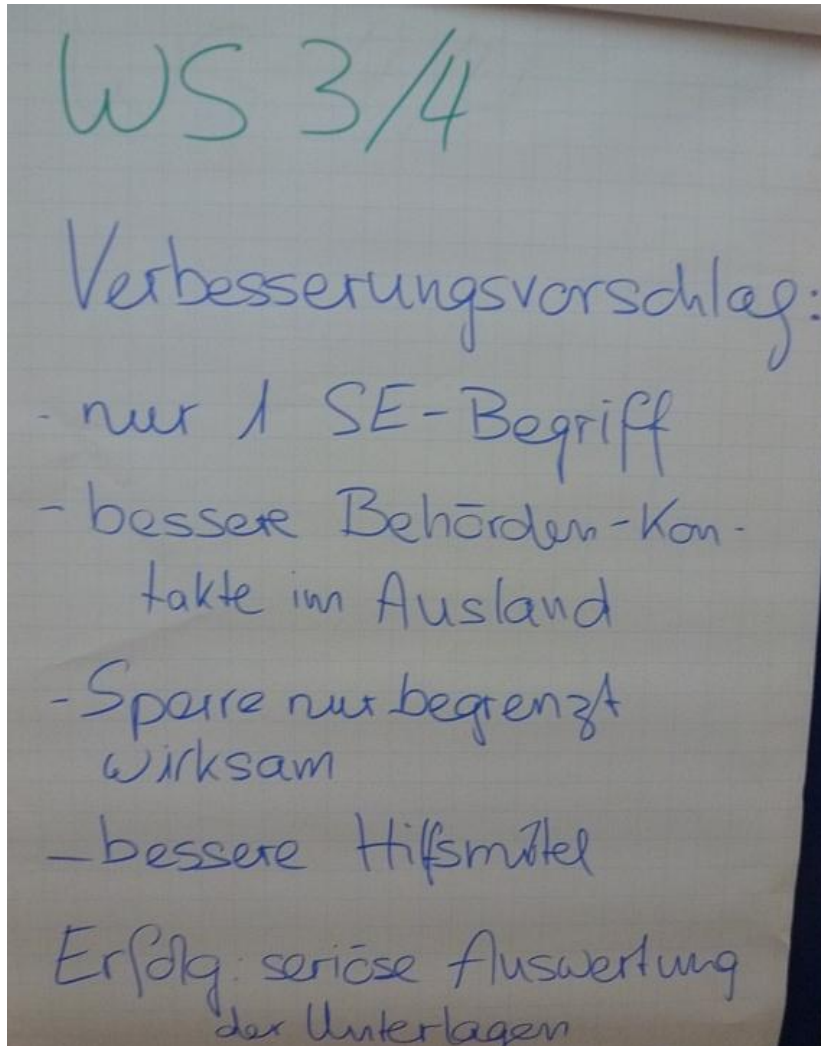 WS 3/4
Verbesserungsvorschlag:
- nur 1 SE-Begriff
- bessere Behörden-Kon-
takte im Ausland
- Sperre nur begrenzt
wirksam
- bessere Hilfsmittel
Erfolg: seriöse Auswertung
der Unterlagen